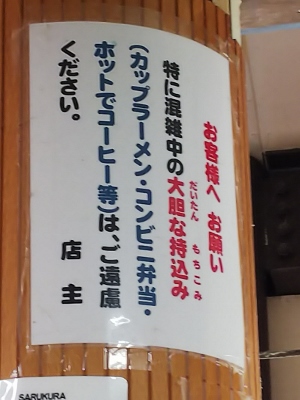 お客様へ お願い
特に混雑中の大胆な持込み
だいたん もちこみ
(カップラーメン・コンビニ弁当・
ホットでコーヒー等)は、ご遠慮
ください。
店主
SARUKURA